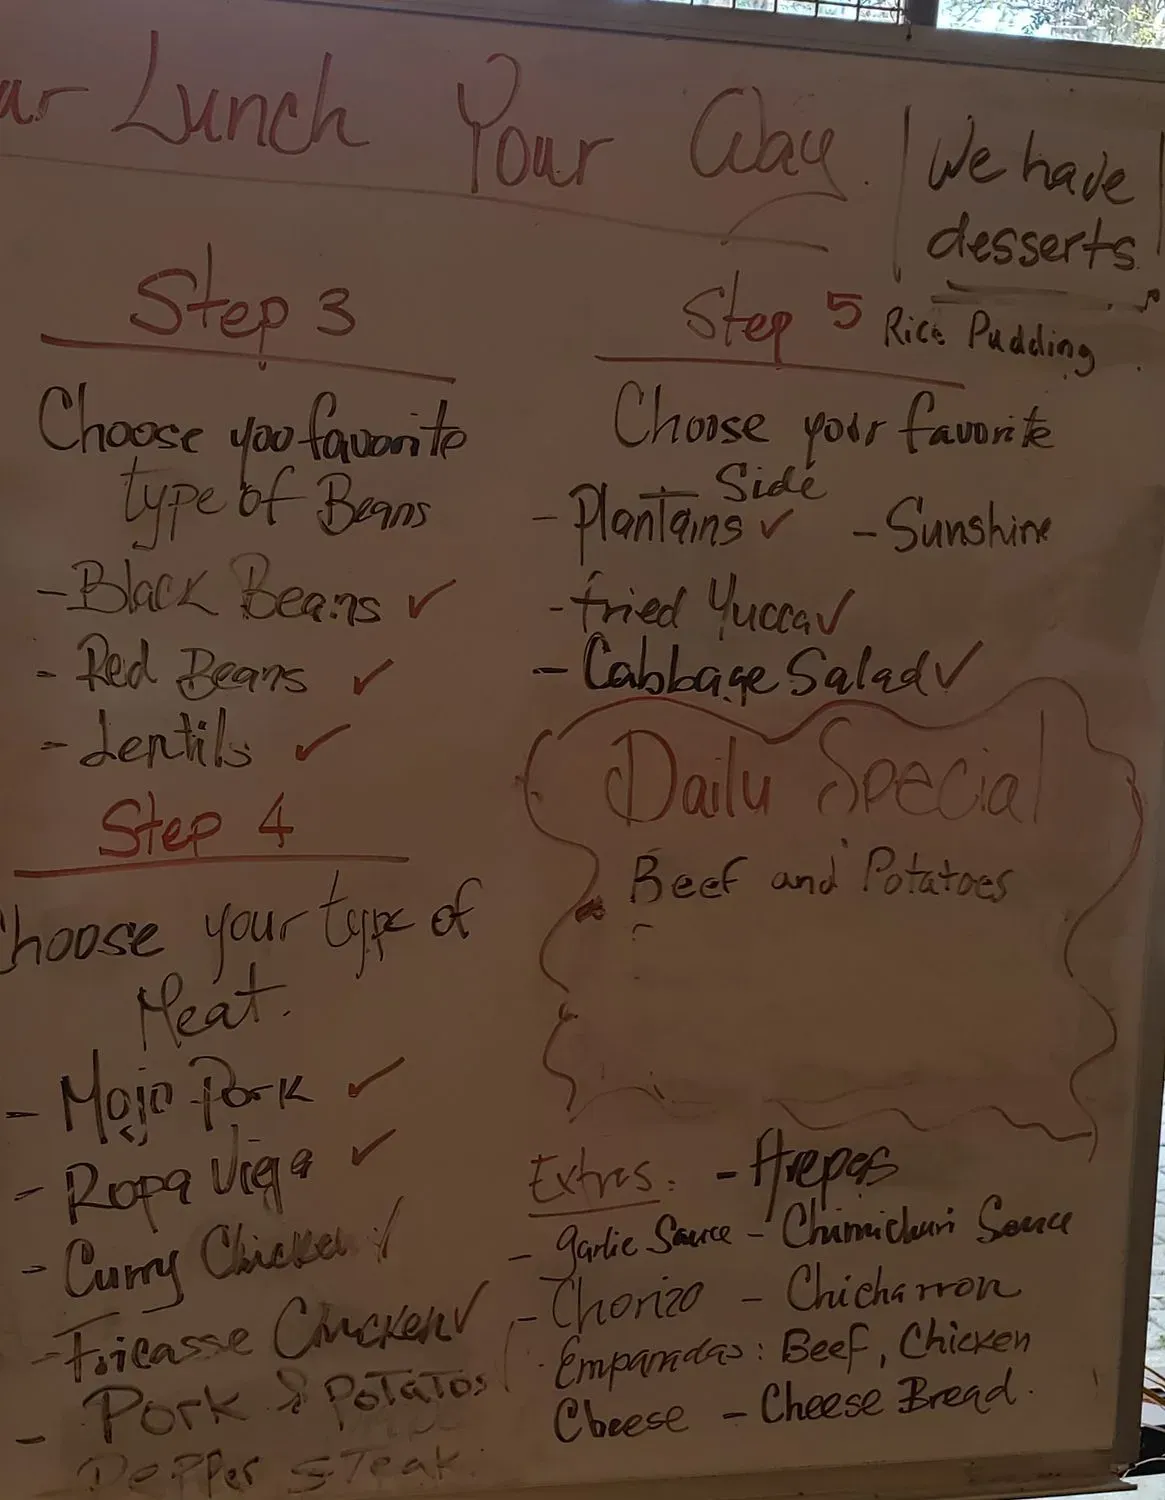 Lunch Your Way.
We have
desserts
Rice Pudding
Step 3
Choose you favorite
type of Beans
- Black Beans ✓
- Red Beans ✓
- Lentils ✓
Step 4
Choose your type of
Meat.
- Mojo Pork ✓
- Ropa Vieja ✓
- Curry Chicken ✓
- Fricasse Chicken ✓
- Pork & Potatos
Pepper Steak
Step 5
Choose your favorite
Side
- Plantains ✓ - Sunshine
- fried Yucca ✓
- Cabbage Salad ✓
Daily Special
Beef and Potatoes
Extras: - Arepas
- garlic Sauce - Chimichuri Sauce
- Chorizo - Chicharron
- Empanadas: Beef, Chicken
Cheese - Cheese Bread.